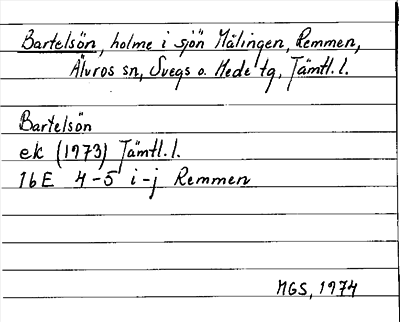 Bartelsön, holme i sjön Målingen, Remmen,
Älvros sn, Svegs o. Hede tg, Jämtl. l.
Bartelsön
ek (1973) Jämtl. l.
16E 4-5 i-j Remmen
MGS, 1974